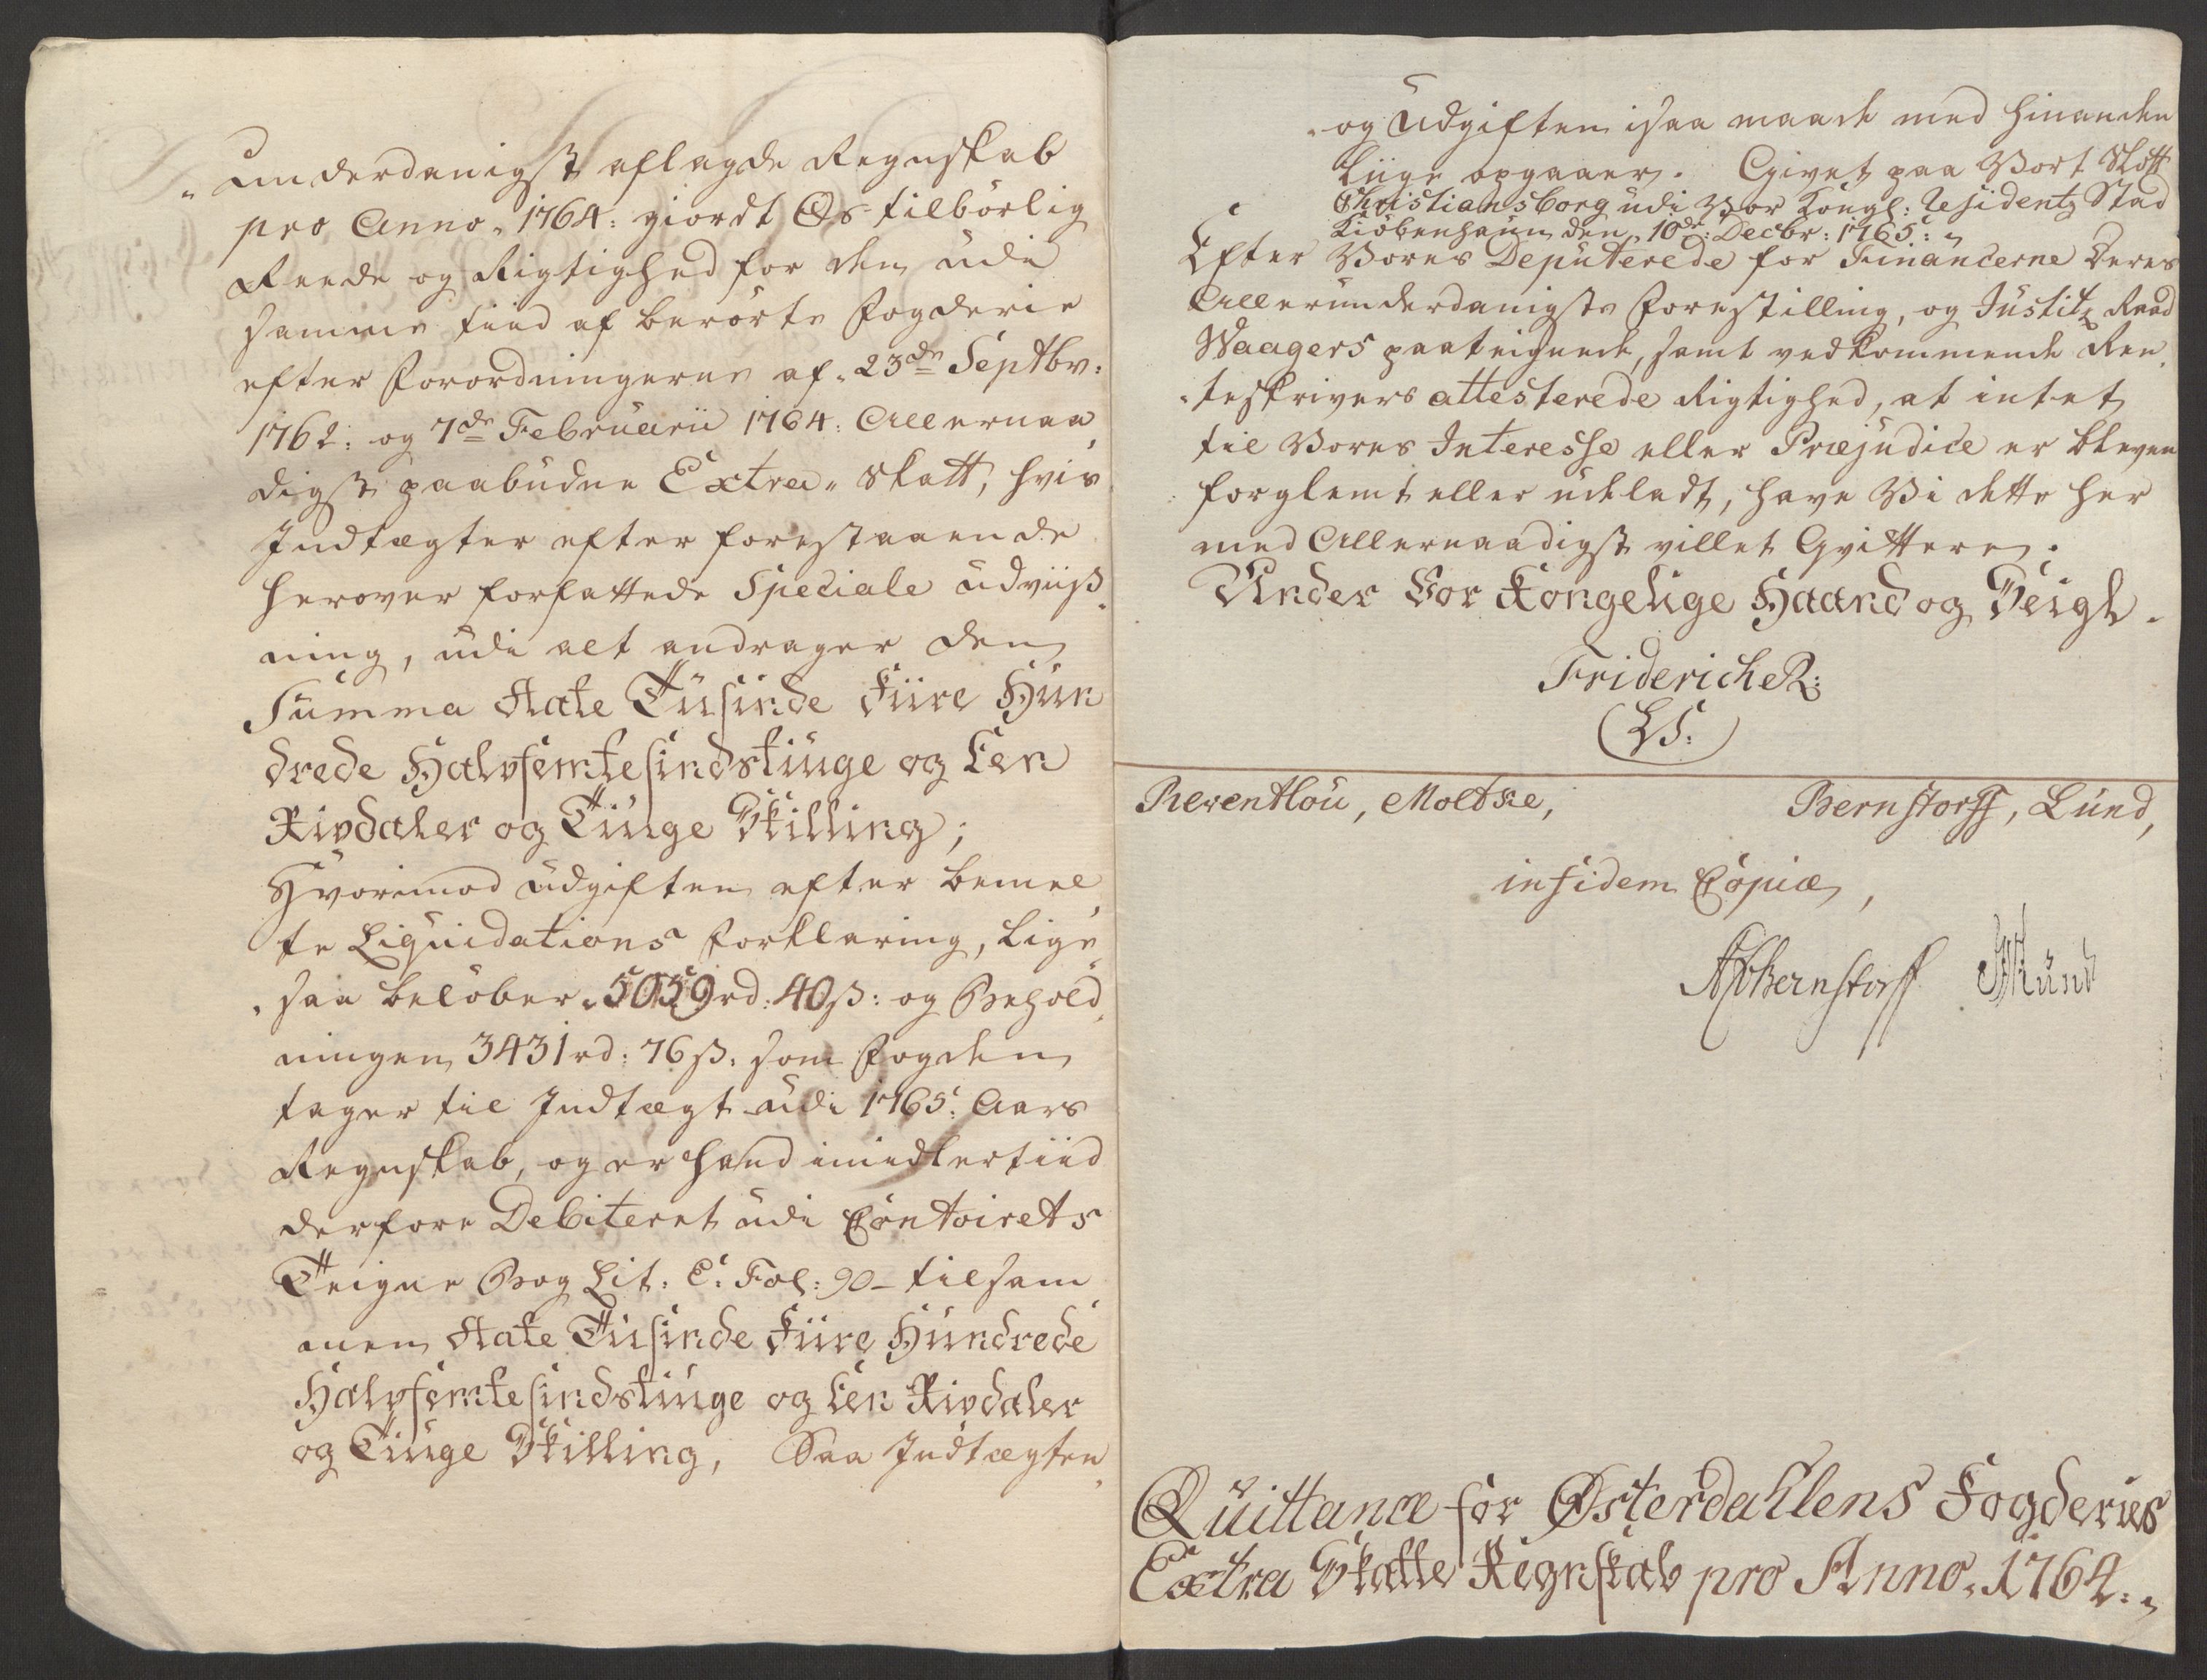 underdanigst aflagde Regnskab
pro Anno 1764: giordt Os tilbørlig
Reede og Rigtighed for den udi
samme tiid af berørte Fogderie
efter Forordningerne af 23de Septbr:
1762: og 7de Februarii 1764. Allernaa
digst paabudne Extra Skatt, hvis
Indtægter efter forestaaende
herover forfattede Speciale udviis
ning, udi alt andrager den
Summa Otte Tusinde Fiire Hun
drede Halvfemtesindstiuge og Een
Rixdaler og Tiuge Skilling;
Hvorimod Udgiften efter bemel
te Liquidations Forklaring, lige
saa beløber 5059rd: 40s: og Behold
ningen 3431rd: 76s. som Fogden
tager til Indtægt udi 1765: Aars
Regnskab, og er hand imidlertiid
derfore Debiteret udi Contoirets
Teigne Bog Lit: C: Fol: 90 - tilsam
men Otte Tusinde Fiire Hundrede
Halvfemtesindstiuge og Een Rixdaler
og Tiuge Skilling, Saa Indtægten
og Udgiften isaa maade med hinanden
liige opgaaer. Givet paa Vort Slott
Christiansborg udi Vor Kongl: Residentz Stad
Kiøbenhaun den 10de: Decbr: 1765:
Efter Vores Deputerede for Financerne Deres
Allerunderdanigste Forestilling, og Justitz Raad
Waagers paateignede, samt vedkommende Ren
teskrivers attesterede Rigtighed, at intet
til Vores Interesse eller Præjudice er bleven
forglemt eller udeladt, have Vi dette her
med Allernaadigst villet Qvittere.
Under Vor Kongelige Haand og Seigl.
Friderich R:
(LS:)
Reventlou, Moltke, Bernstorff, Lund,
in fidem Copiæ,
APBernstorff
Quittance for Østerdahlens Fogderies
Extra Skatte Regnskab pro Anno 1764: